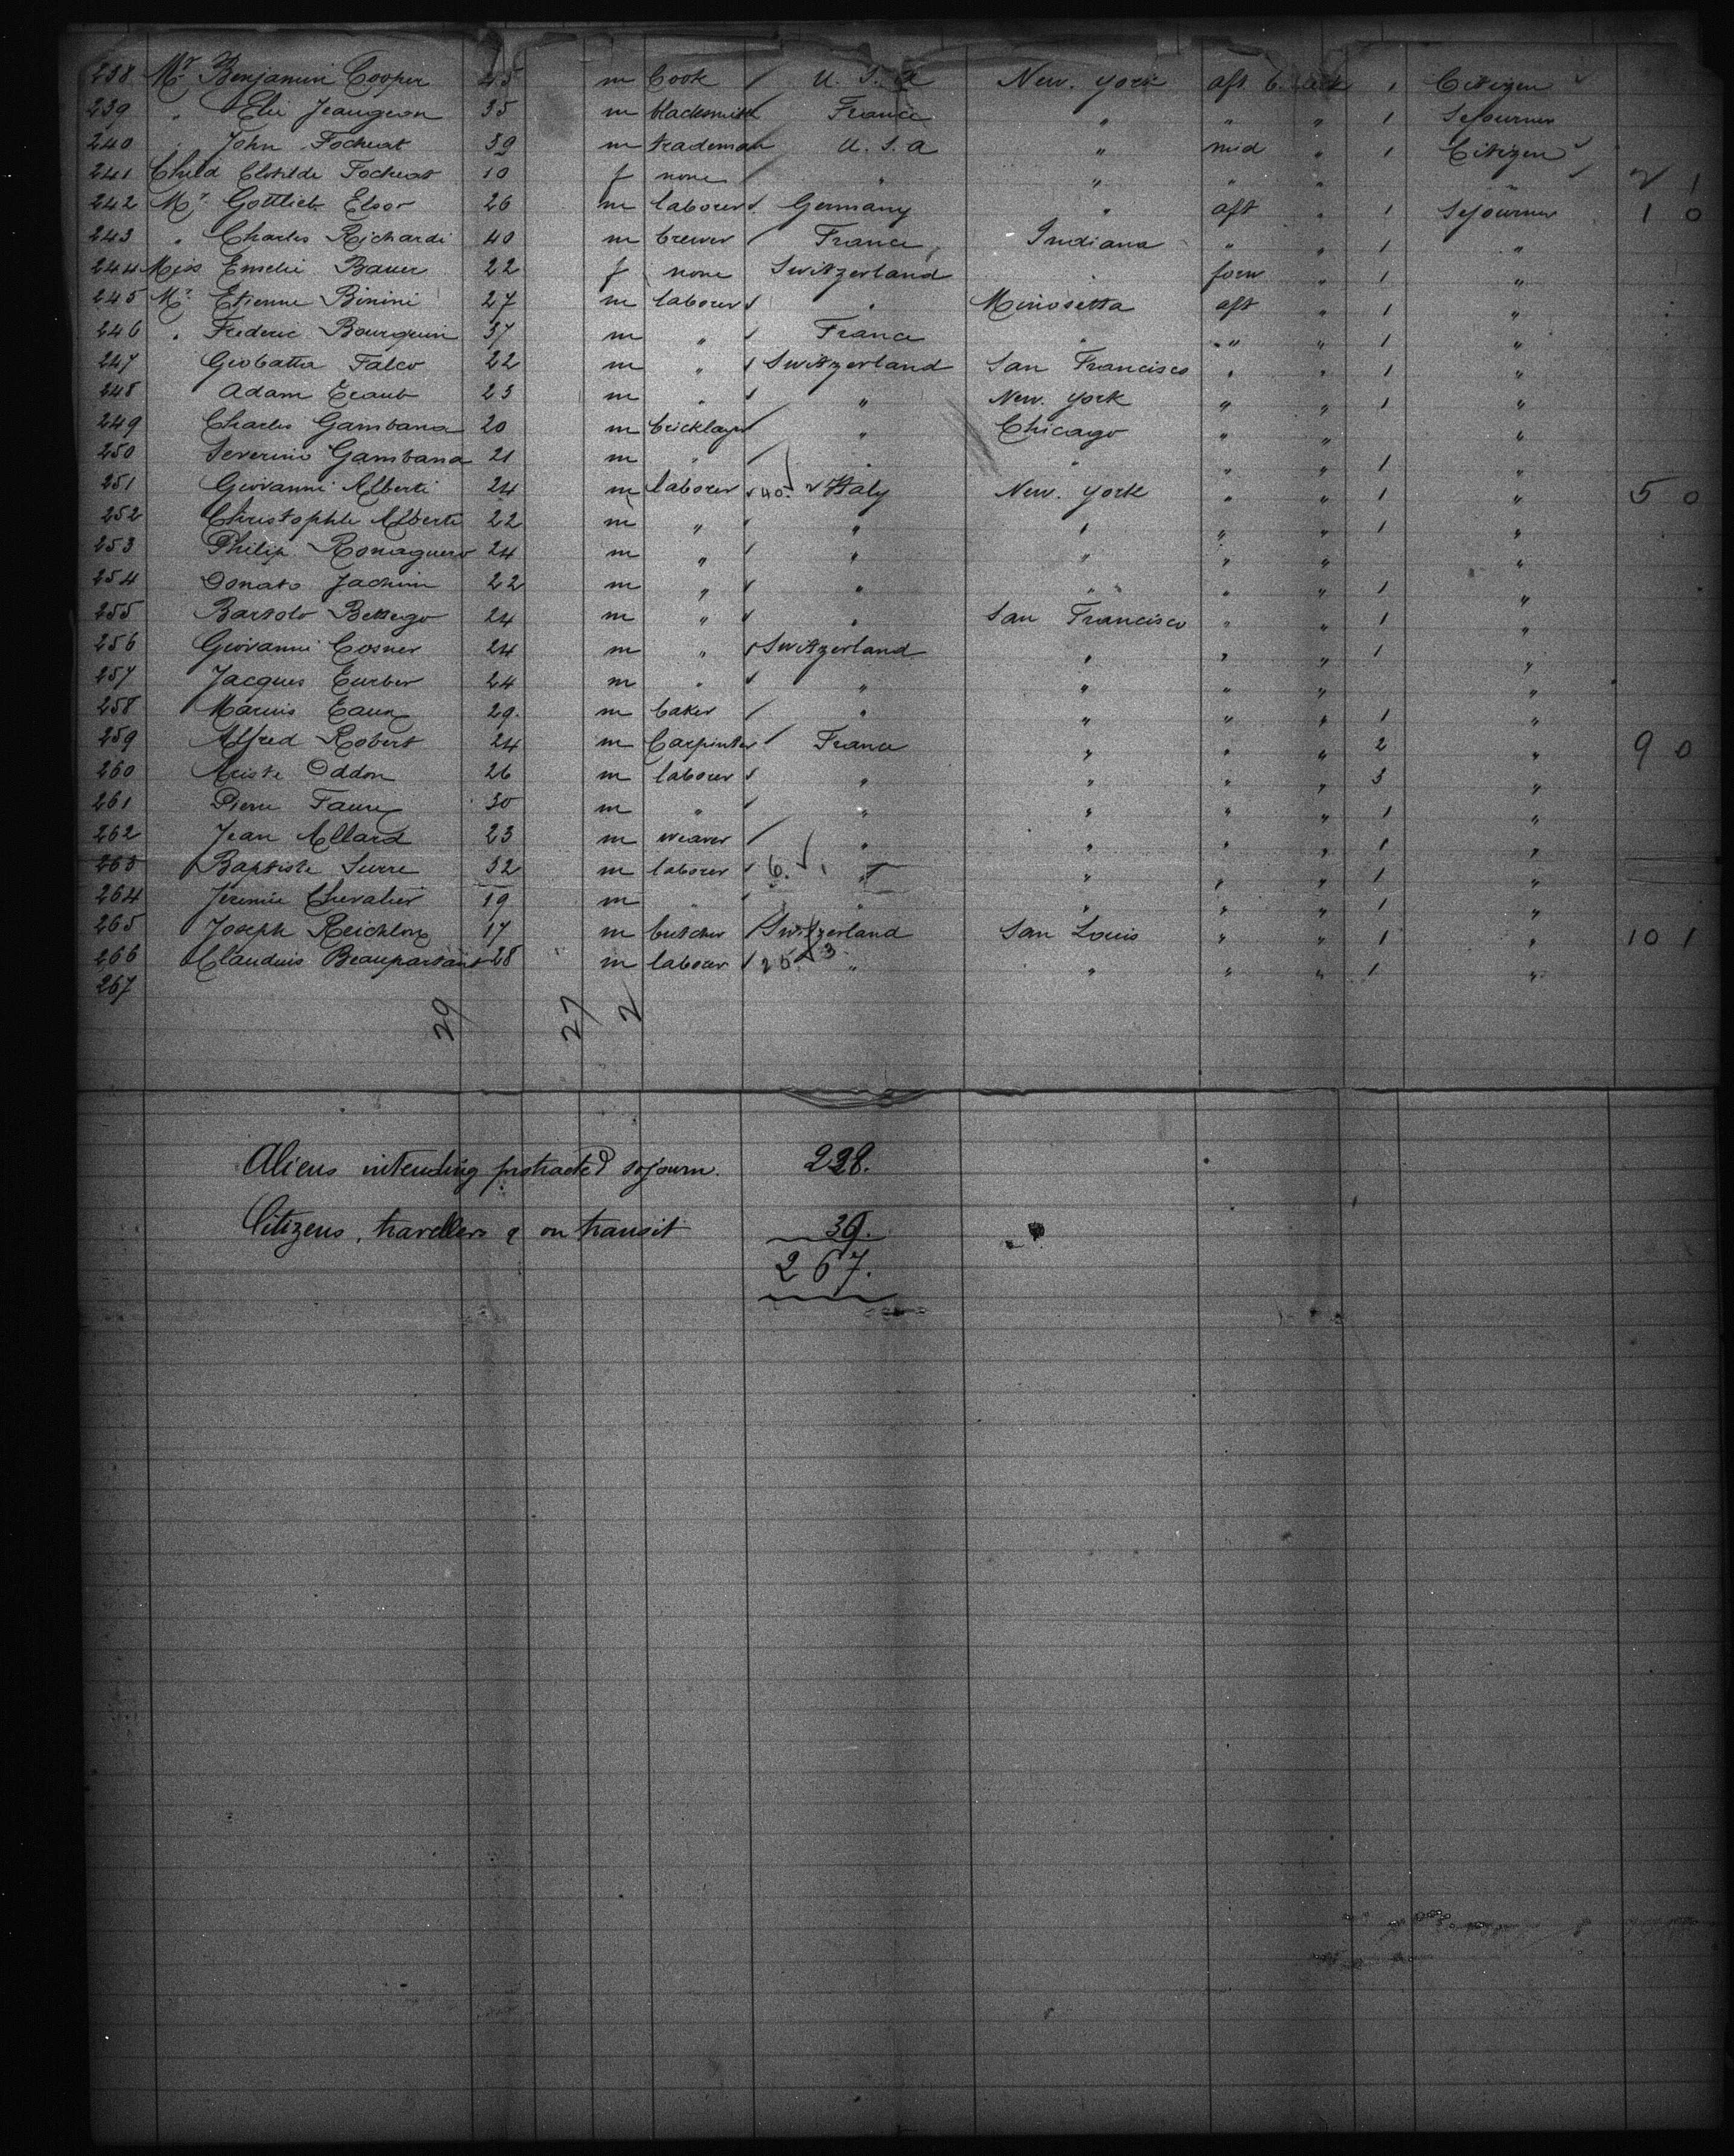 238 Mr Benjamin Cooper 45 m Cook / U. S. a New. york aft b. deck 1 Citizen
239 " Elie Jeangeon 35 m blacksmith France " " " 1 Sejourner
240 " John Focheat 39 m trademan U. S. a " mid " 1 Citizen
241 Child Clotilde Focheat 10 f none / " " " " " 2 1
242 Mr Gottlieb Elsor 26 m laborer Germany " aft " 1 Sejourner 1 0
243 " Charles Richardi 40 m brewer / France Indiana " " 1 "
244 Miss Emelie Bauer 22 f none Switzerland " forw " 1 "
245 Mr Etienne Binini 27 m laborer " Minosetta aft " 1 "
246 " Frederic Bourquin 37 m " France " " " 1 "
247 Giobatta Falco 22 m " Switzerland San Francisco " " 1 "
248 Adam Traub 23 m " " New. york " " 1 "
249 Charles Gambana 20 m bricklayer " Chicago " " "
250 Severino Gambana 21 m " / " " " " 1 "
251 Giovanni Alberti 24 m laborer 40. Italy New. york " " 1 " 5 0
252 Christophle Alberti 22 m " " " " " 1 "
253 Philip. Romaguero 24 m " " " " " "
254 Donato Jachim 22 m " " " " " 1 "
255 Bartolo Bettego 24 m " " San Francisco " " 1 "
256 Giovanni Cosner 24 m " Switzerland " " " 1 "
257 Jacques Eurber 24 m " " " " " "
258 Marius Eaun 29. m baker / " " " " 1 "
259 Alfred Robert 24 m Carpinter / France " " " 2 " 9 0
260 Ariste Oddon 26 m laborer " " " " 3 "
261 Pierre Faure 30 m " " " " " 1 "
262 Jean Allard 23 m weaver / " " " " 1 "
263 Baptiste Serre 32 m laborer 6. " " " " 1 "
264 Jeremie Chevalier 19 m " " " " " 1 "
265 Joseph Reichlong 17 m butcher / Switzerland San Louis " " 1 " 10 1
266 Clauduis Beaupartant 28 m laborer 26. 3 " " " " 1 "
267
29 27 2
Aliens intending protracted sojourn. 228.
Citizens, travellers & on transit 39.
267.